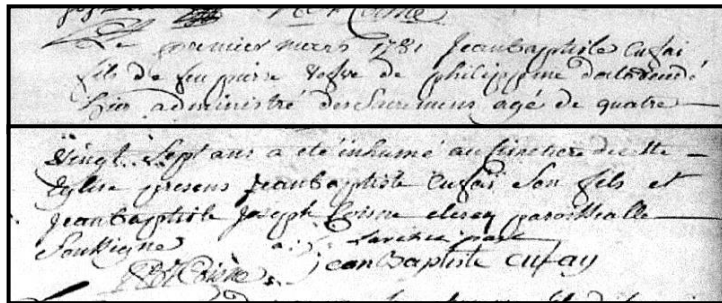 Le premier mars 1781 Jean baptiste Cufai
fils de feu pierre vefve de philippine decedé
hier administré des Sacremens agé de quatre
vingt Sept ans a eté inhumé au cimetiere de cette
Eglise presens Jean baptiste Cufai Son fils et
Jean baptiste Joseph Coisne clercq paroissialle
Soussigné
Jean Baptiste cufay